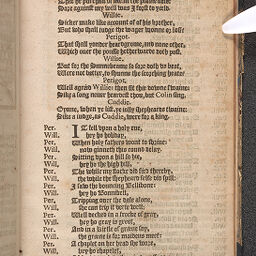 Sage against my well was I tryed to runne
Willie.
Sicker make like account of of his brother,
But who shall iudge the wager wonne or lost?
Perigot.
That shall yonder heardgrome, and none other,
Which ouer the pousse hetherwarde doth post.
Willie.
But for the Sunnebeame so sore doth vs beat,
Were not better, to shunne the scorching heate?
Perigot.
Well agreed Willie: then sit thee downe swaine:
Sike a song neuer heardest thou, but Colin sing.
Cuddie.
Gynne, when ye list, ye iolly shepheards twaine:
Sike a iudge, as Cuddie, were for a king.
Per. IT fell vpon a holy eue,
Wil. hey ho holiday,
Per. When holy fathers wont to shrieue:
Wil. now ginneth this roundelay.
Per. Sitting vpon a hill so hie,
Wil. hey ho the high hill,
Per. The while my flocke did feed thereby,
Wil. the while the shepheard selfe did spill:
Per. I saw the bouncing Bellibone:
Wil. hey ho Bonnibell,
Per. Tripping ouer the dale alone,
Wil. she can trip it very well:
Per. Well decked in a frocke of gray,
Wil. hey ho gray is greet,
Per. And in a kirtle of greene say,
Wil. the greene is for maidens meet:
Per. A chaplet on her head she wore,
Wil. hey ho chapelet,